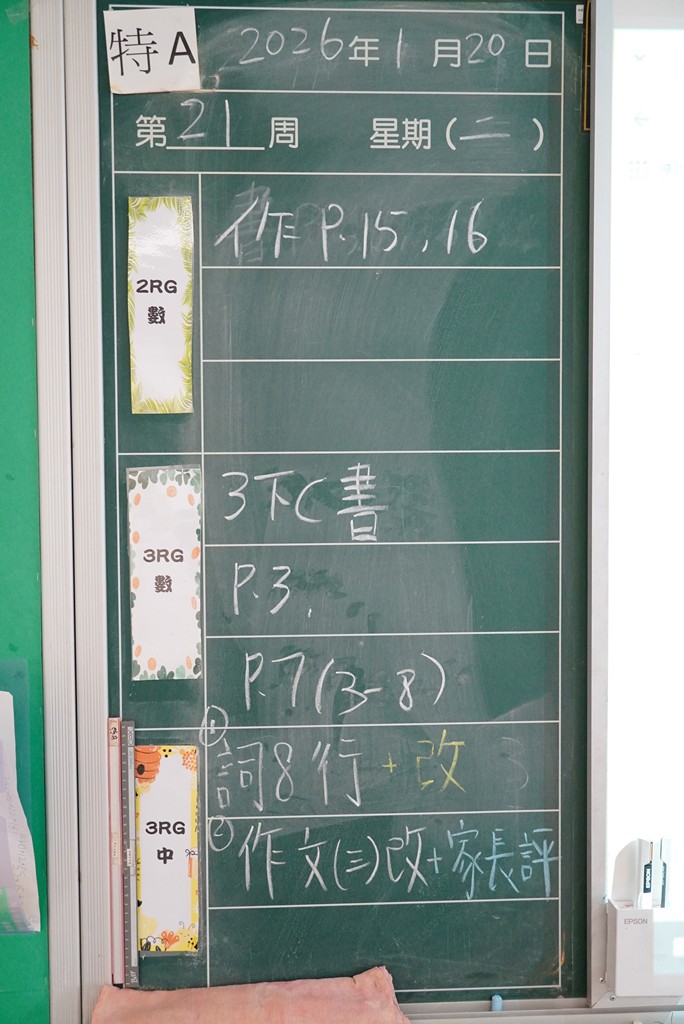 特A
2026年1月20日
第21周 星期(二)
2RG
數
作 P.15,16
3RG
數
3下C書
P.3.
P.7(3-8)
3RG
中
①詞8行+改
②作文(三)改+家長評
EPSON
EPSON